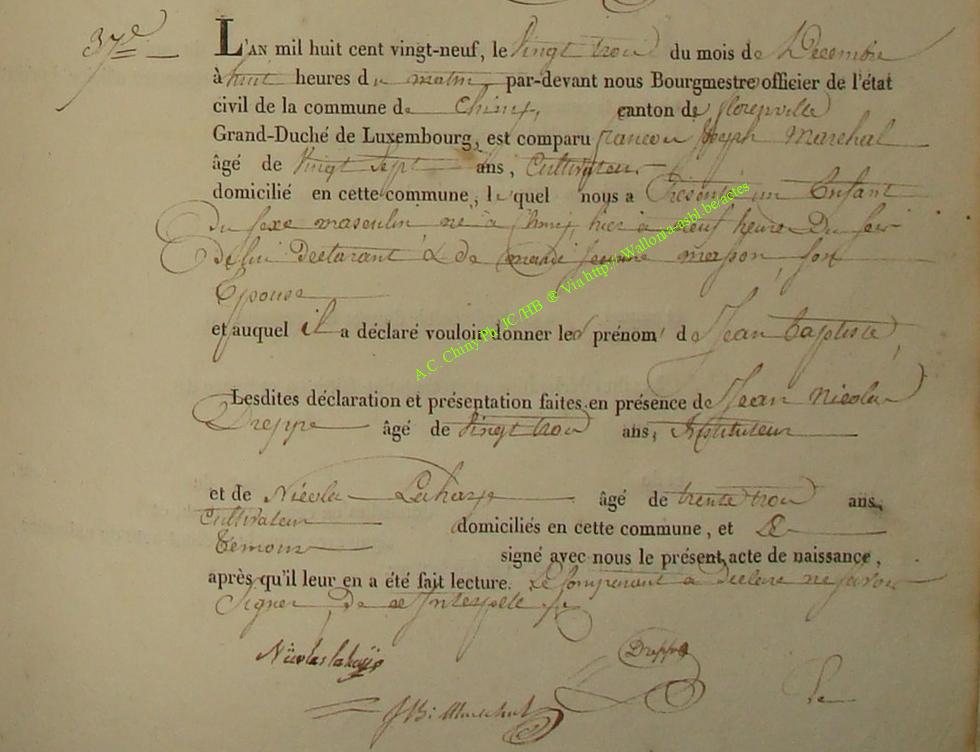 37e
L'AN mil huit cent vingt-neuf, le Vingt trois du mois de Decembre
à huit heures du matin, par-devant nous Bourgmestre officier de l'état
civil de la commune de Chiny, canton de florenville
Grand-Duché de Luxembourg, est comparu francois Joseph Marechal
âgé de Vingt Sept ans, Cultivateur
domicilié en cette commune, lequel nous a Presenté un Enfant
du Sexe masculin né à Chiny, hier à neuf heures du soir
de lui declarant & de marie jeanne masson, son
Epouse
et auquel il a déclaré vouloir donner les prénom de Jean Baptiste,
Lesdites déclaration et présentation faites en présence de Jean Nicolas
Dreppe âgé de Vingt trois ans, Instituteur
et de Nicolas Lahaye âgé de trente trois ans,
Cultivateur domiciliés en cette commune, et Les
temoins signé avec nous le présent acte de naissance,
après qu'il leur en a été fait lecture. Le Comparant a declaré ne savoir
Signer, de ce Interpellé
Nicolas lahaye Dreppe
JB: Marechal Le
A.C. Chiny Ph. JC/HB @ Via http://Wallonia-asbl.be/actes